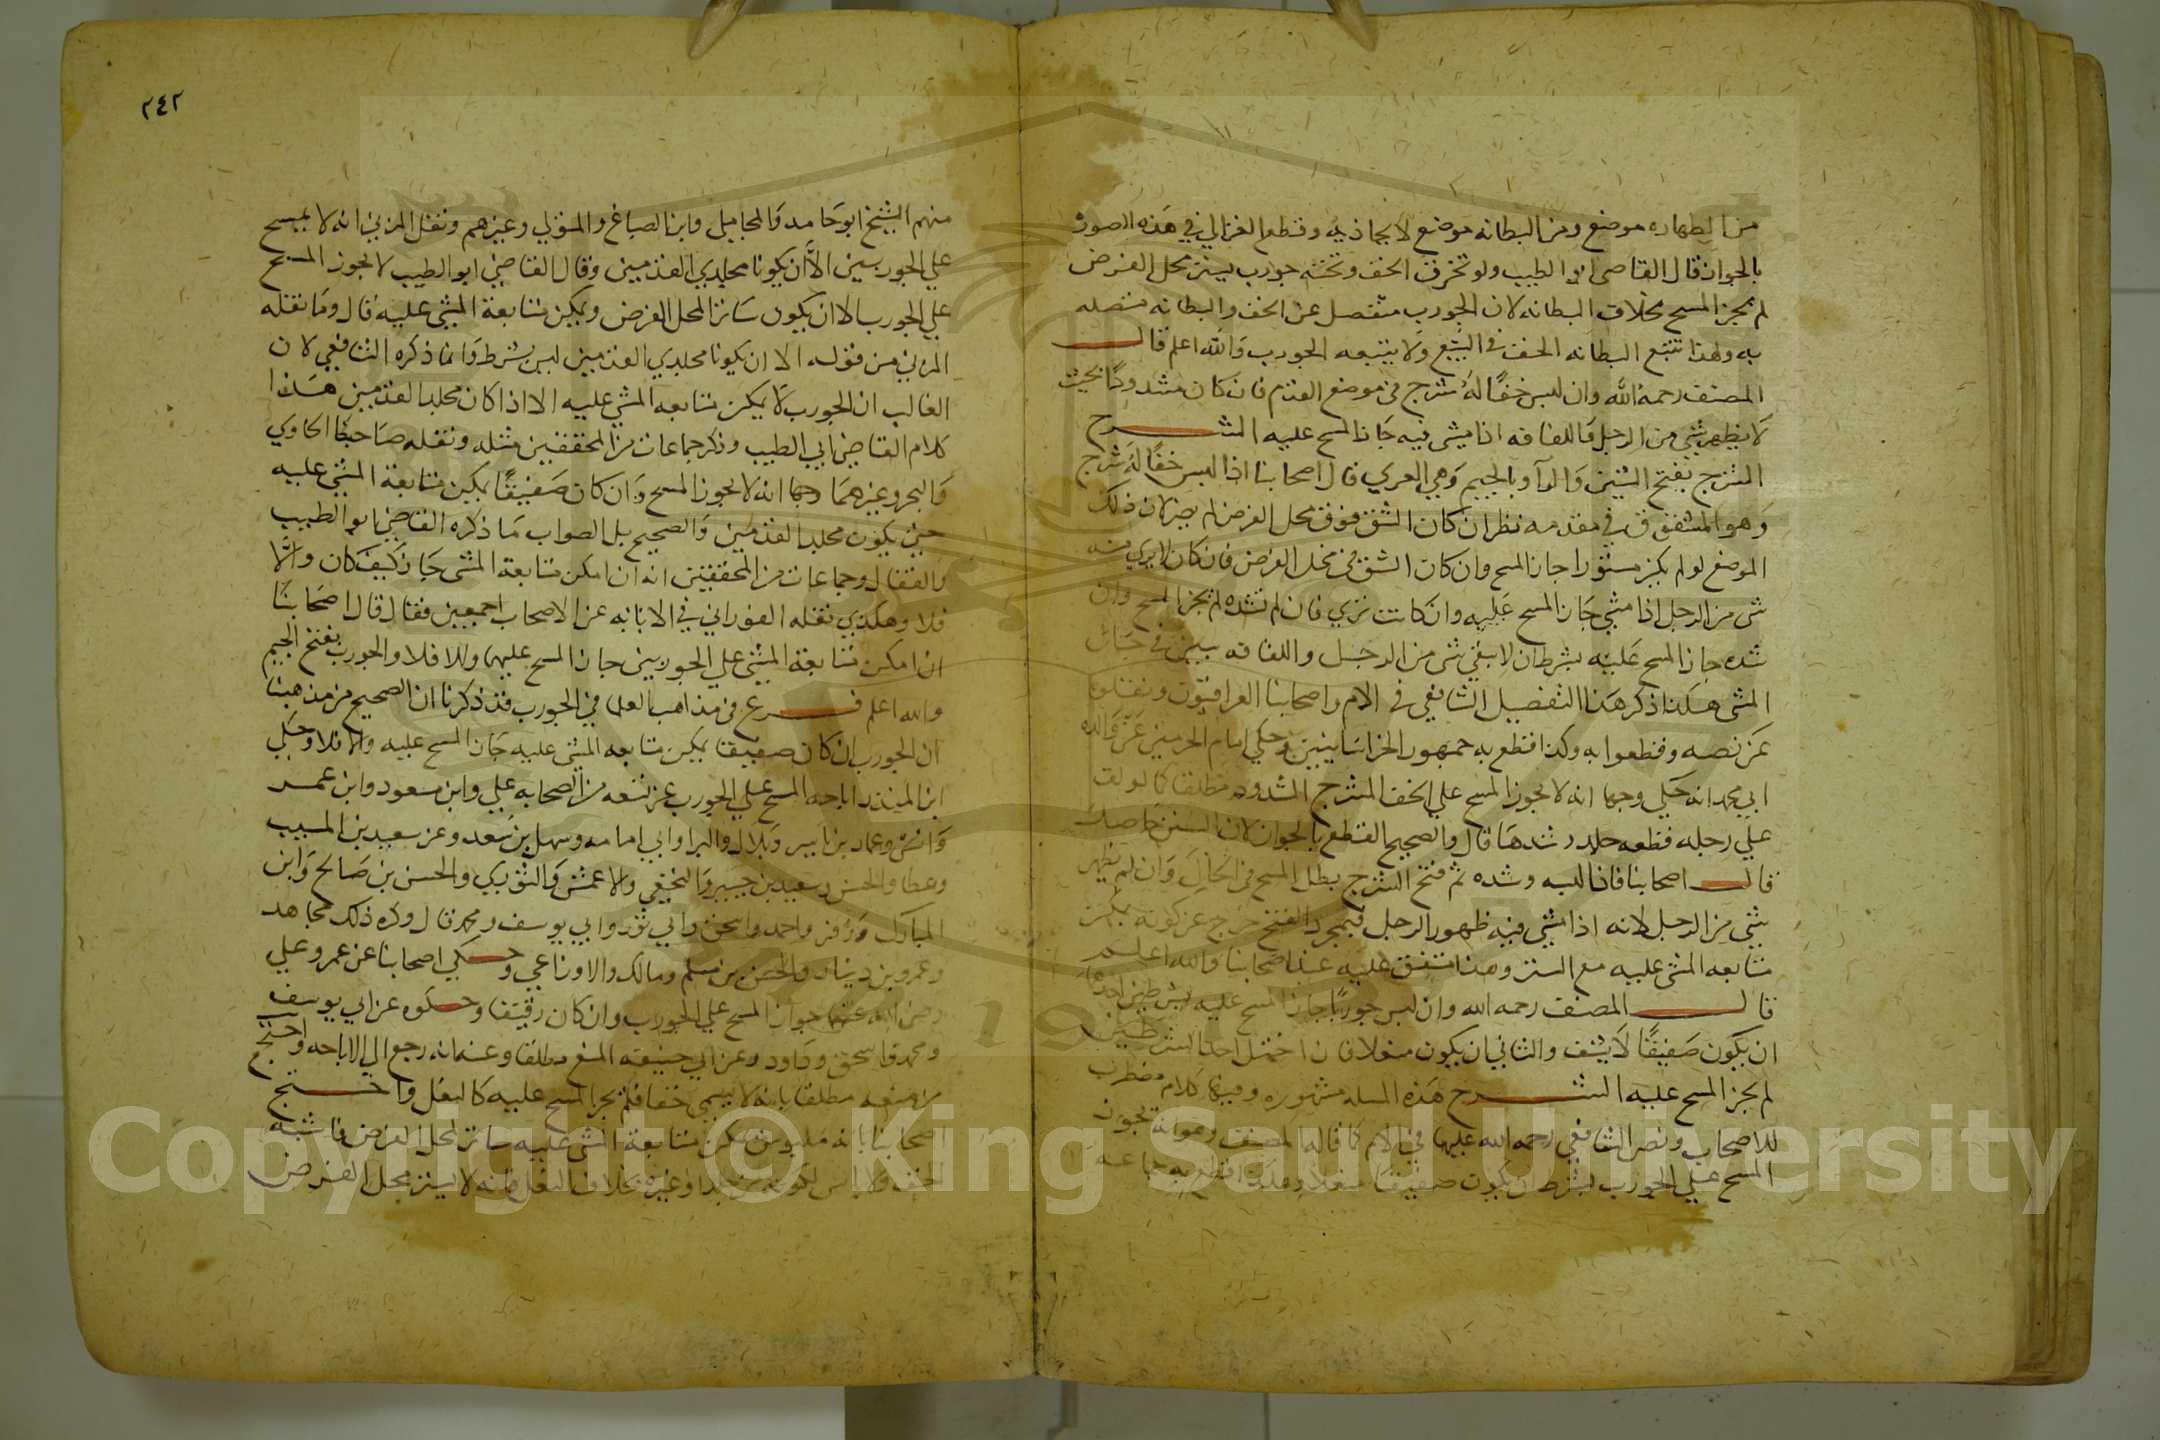 من الطهاره موضع ومن البطانه موضع لا يحاذيه وقطع الغزالي في هذه الصوره
بالجواز قال القاضي ابو الطيب ولو تخرق الخف وتحته جورب يستر محل الفرض
لم يجز المسح بخلاف البطانه لان الجورب منفصل عن الخف والبطانه متصله
به ولهذا تتبع البطانه الخف في البيع ولا يتبعه الجورب والله اعلم قال
المصنف رحمه الله وان لبس خفًا لهُ شرج في موضع القدم فان كان مشدودًا بحيث
لا يظهر شي من الرجل واللفافه اذا مشى فيه جاز المسح عليه الشرح
الشرج بفتح الشين والرآ وبالجيم وهي العري قال اصحابنا اذا لبس خفًا لهُ شرج
وهو المشقوق في مقدمه نظر ان كان الشق فوق محل الفرض لم يضر لان ذلك
الموضع لو لم يكن مستورا جاز المسح وان كان الشق في محل الفرض فان كان لا يرى منه
شي من الرجل اذا مشى جاز المسح عليه وان كانت ترى فان لم تشده لم يجز المسح وان
شده جاز المسح عليه بشرط ان لا يبقى شي من الرجل واللفافه يبين في حال
المشي هكذا ذكر هذا التفصيل الشافعي في الام واصحابنا العراقيون ونقلوه
عن نصه وقطعوا به وكذا قطع به جمهور الخراسانيين وحكي امام الحرمين عن والده
ابي محمد انه حكي وجها انه لا يجوز المسح علي الخف المشرج المشدود مطلقا كما لو لف
علي رجله قطعه جلد وشدها قال والصحيح القطع بالجواز لان الستر حاصل
قال اصحابنا فاذا لبسه وشده ثم فتح الشرج بطل المسح في الحال وان لم يظهر
شي من الرجل لانه اذا مشى فيه ظهور الرجل فبمجرد الفتح خرج عن كونه يمكن
متابعه المشي عليه مع الستر وهذا متفق عليه عند اصحابنا والله اعلم
قال المصنف رحمه الله وان لبس جوربًا جاز المسح عليه بشرطين احدهما
ان يكون صفيقًا لا يشف والثاني ان يكون منعلا فان اختل احد الشرطين
لم يجز المسح عليه الشرح هذه المسله مشهوره وفيها كلام مضطرب
للاصحاب ونص الشافعي رحمه الله عليها في الام كما قاله المصنف وهو انه يجوز
المسح علي الجورب بشرط ان يكون صفيقا منعلا وهكذا قطع به جماعه
٢٤٢
منهم الشيخ ابو حامد والمحاملي وابن الصباغ والمتولي وغيرهم ونقل المزني انه لا يمسح
علي الجوربين الا ان يكونا مجلدي القدمين وقال القاضي ابو الطيب لا يجوز المسح
علي الجورب الا ان يكون ساترا لمحل الفرض ويمكن متابعة المشي عليه قال وما نقله
المزني من قوله الا ان يكونا مجلدي القدمين ليس بشرط وانما ذكره الشافعي لان
الغالب ان الجورب لا يمكن متابعه المشي عليه الا اذا كان مجلد القدمين هذا
كلام القاضي ابي الطيب وذكر جماعات من المحققين مثله ونقله صاحبا الحاوي
والبحر وغيرهما وجها انه لا يجوز المسح وان كان صفيقًا يمكن متابعة المشي عليه
حتى يكون مجلد القدمين والصحيح بل الصواب ما ذكره القاضي ابو الطيب
والقفال وجماعات من المحققين انه ان امكن متابعة المشي جاز كيف كان والا
فلا وهكذى نقله الفوراني في الابانه عن الاصحاب اجمعين فقال قال اصحابنا
ان امكن متابعة المشي علي الجوربين جاز المسح عليها والا فلا والجورب بفتح الجيم
والله اعلم فرع في مذاهب العلما في الجورب قد ذكرنا ان الصحيح من مذهبنا
ان الجورب ان كان صفيقا يمكن متابعه المشي عليه جاز المسح عليه والا فلا وحكي
ابن المنذر اباحه المسح علي الجورب عن تسعه من الصحابه علي وابن مسعود وابن عمر
وانس وعمار بن ياسر وبلال والبرا وابي امامه وسهل بن سعد وعن سعيد بن المسيب
وعطا والحسن وسعيد بن جبير والنخعي والاعمش والثوري والحسن بن صالح وابن
المبارك وزفر واحمد واسحق وابي ثور وابي يوسف ومحمد قال وكره ذلك مجاهد
وعمرو بن دينار والحسن بن مسلم ومالك والاوزاعي وحكي اصحابنا عن عمر وعلي
رضي الله عنهما جواز المسح علي الجورب وان كان رقيقا وحكوه عن ابي يوسف
ومحمد واسحق وداود وعن ابي حنيفه المنع مطلقا وعنه انه رجع الي الاباحه واحتج
من منعه مطلقا بانه لا يسمى خفا فلم يجز المسح عليه كالنعل واحتج
اصحابنا بانه ملبوس يمكن متابعة المشي عليه ساتر لمحل الفرض فاشبه
الخف ولا باس لكونه من جلد او غيره بخلاف النعل فانه لا يستر محل الفرض
Copyright © King Saud University